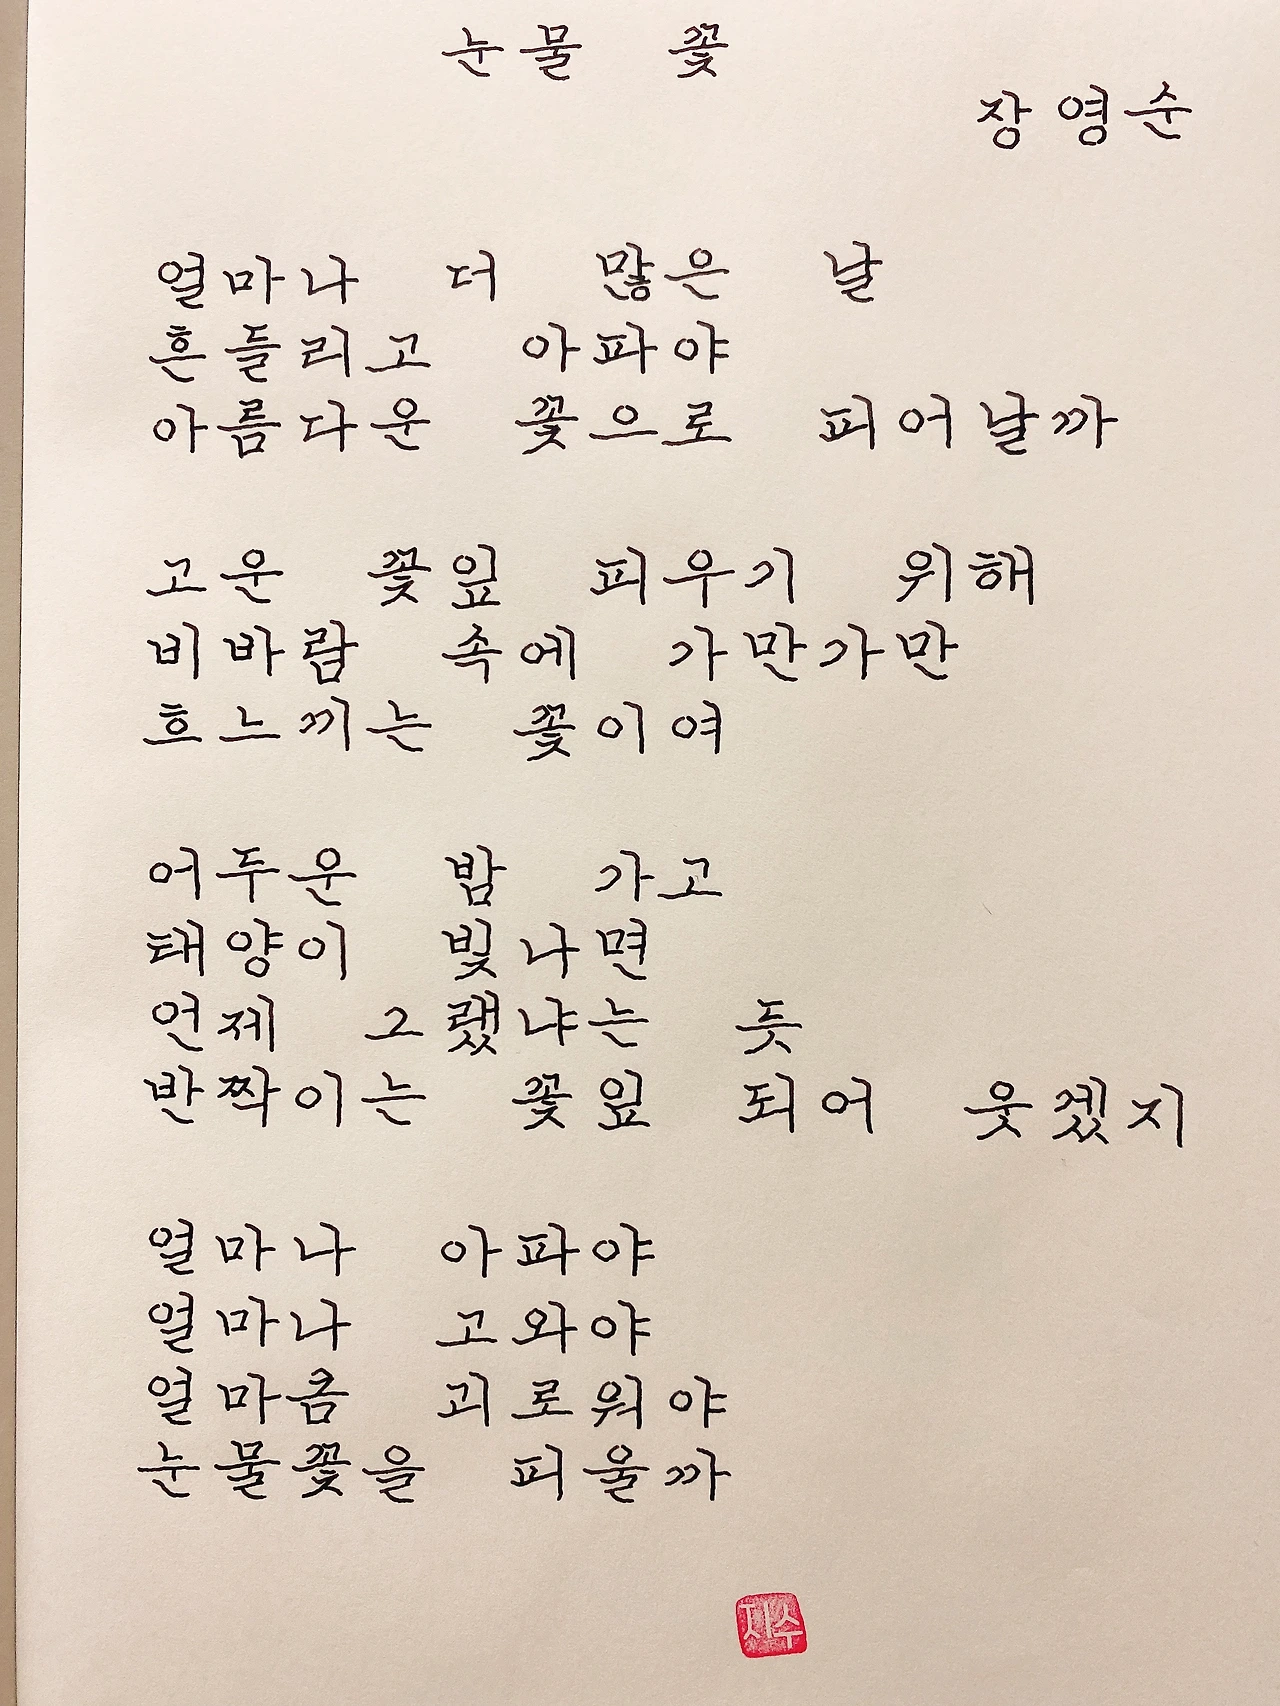 눈물 꽃
장영순
얼마나 더 많은 날
흔들리고 아파야
아름다운 꽃으로 피어날까
고운 꽃잎 피우기 위해
비바람 속에 가만가만
흐느끼는 꽃이여
어두운 밤 가고
태양이 빛나면
언제 그랬냐는 듯
반짝이는 꽃잎 되어 웃겠지
얼마나 아파야
얼마나 고와야
얼마큼 괴로워야
눈물꽃을 피울까